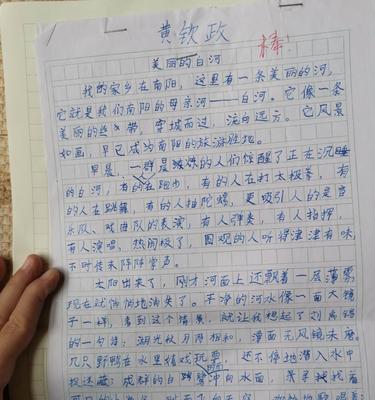 黄钦政
棒!
美丽的白河
我的家乡在南阳，这里有一条美丽的河，
它就是我们南阳的母亲河——白河。它像一条
美丽的丝带，穿城而过，流向远方。它风景
如画，早已成为南阳的旅游胜地。
早晨，一群晨练的人们惊醒了正在沉睡
的白河，有的在跑步，有的人在打太极拳，有
的人在跳舞，有的人抽陀螺，更吸引人的是音
乐队、戏曲队的表演，有人弹奏，有人指挥，
有人演唱，热闹极了，围观的人听得津津有味，
不时传来阵阵掌声。
太阳出来了，刚才河面上还飘着一层薄雾，
现在就悄悄地消失了。干净的河水像一面大镜
子一样，看到这个情景，就让我想起了刘禹锡
的一句诗：湖光秋月两相和，潭面无风镜未磨。
几只野鸭在水里嬉戏玩耍，还不停地潜入水中
捉迷藏；成群的白鹭冲向水面，